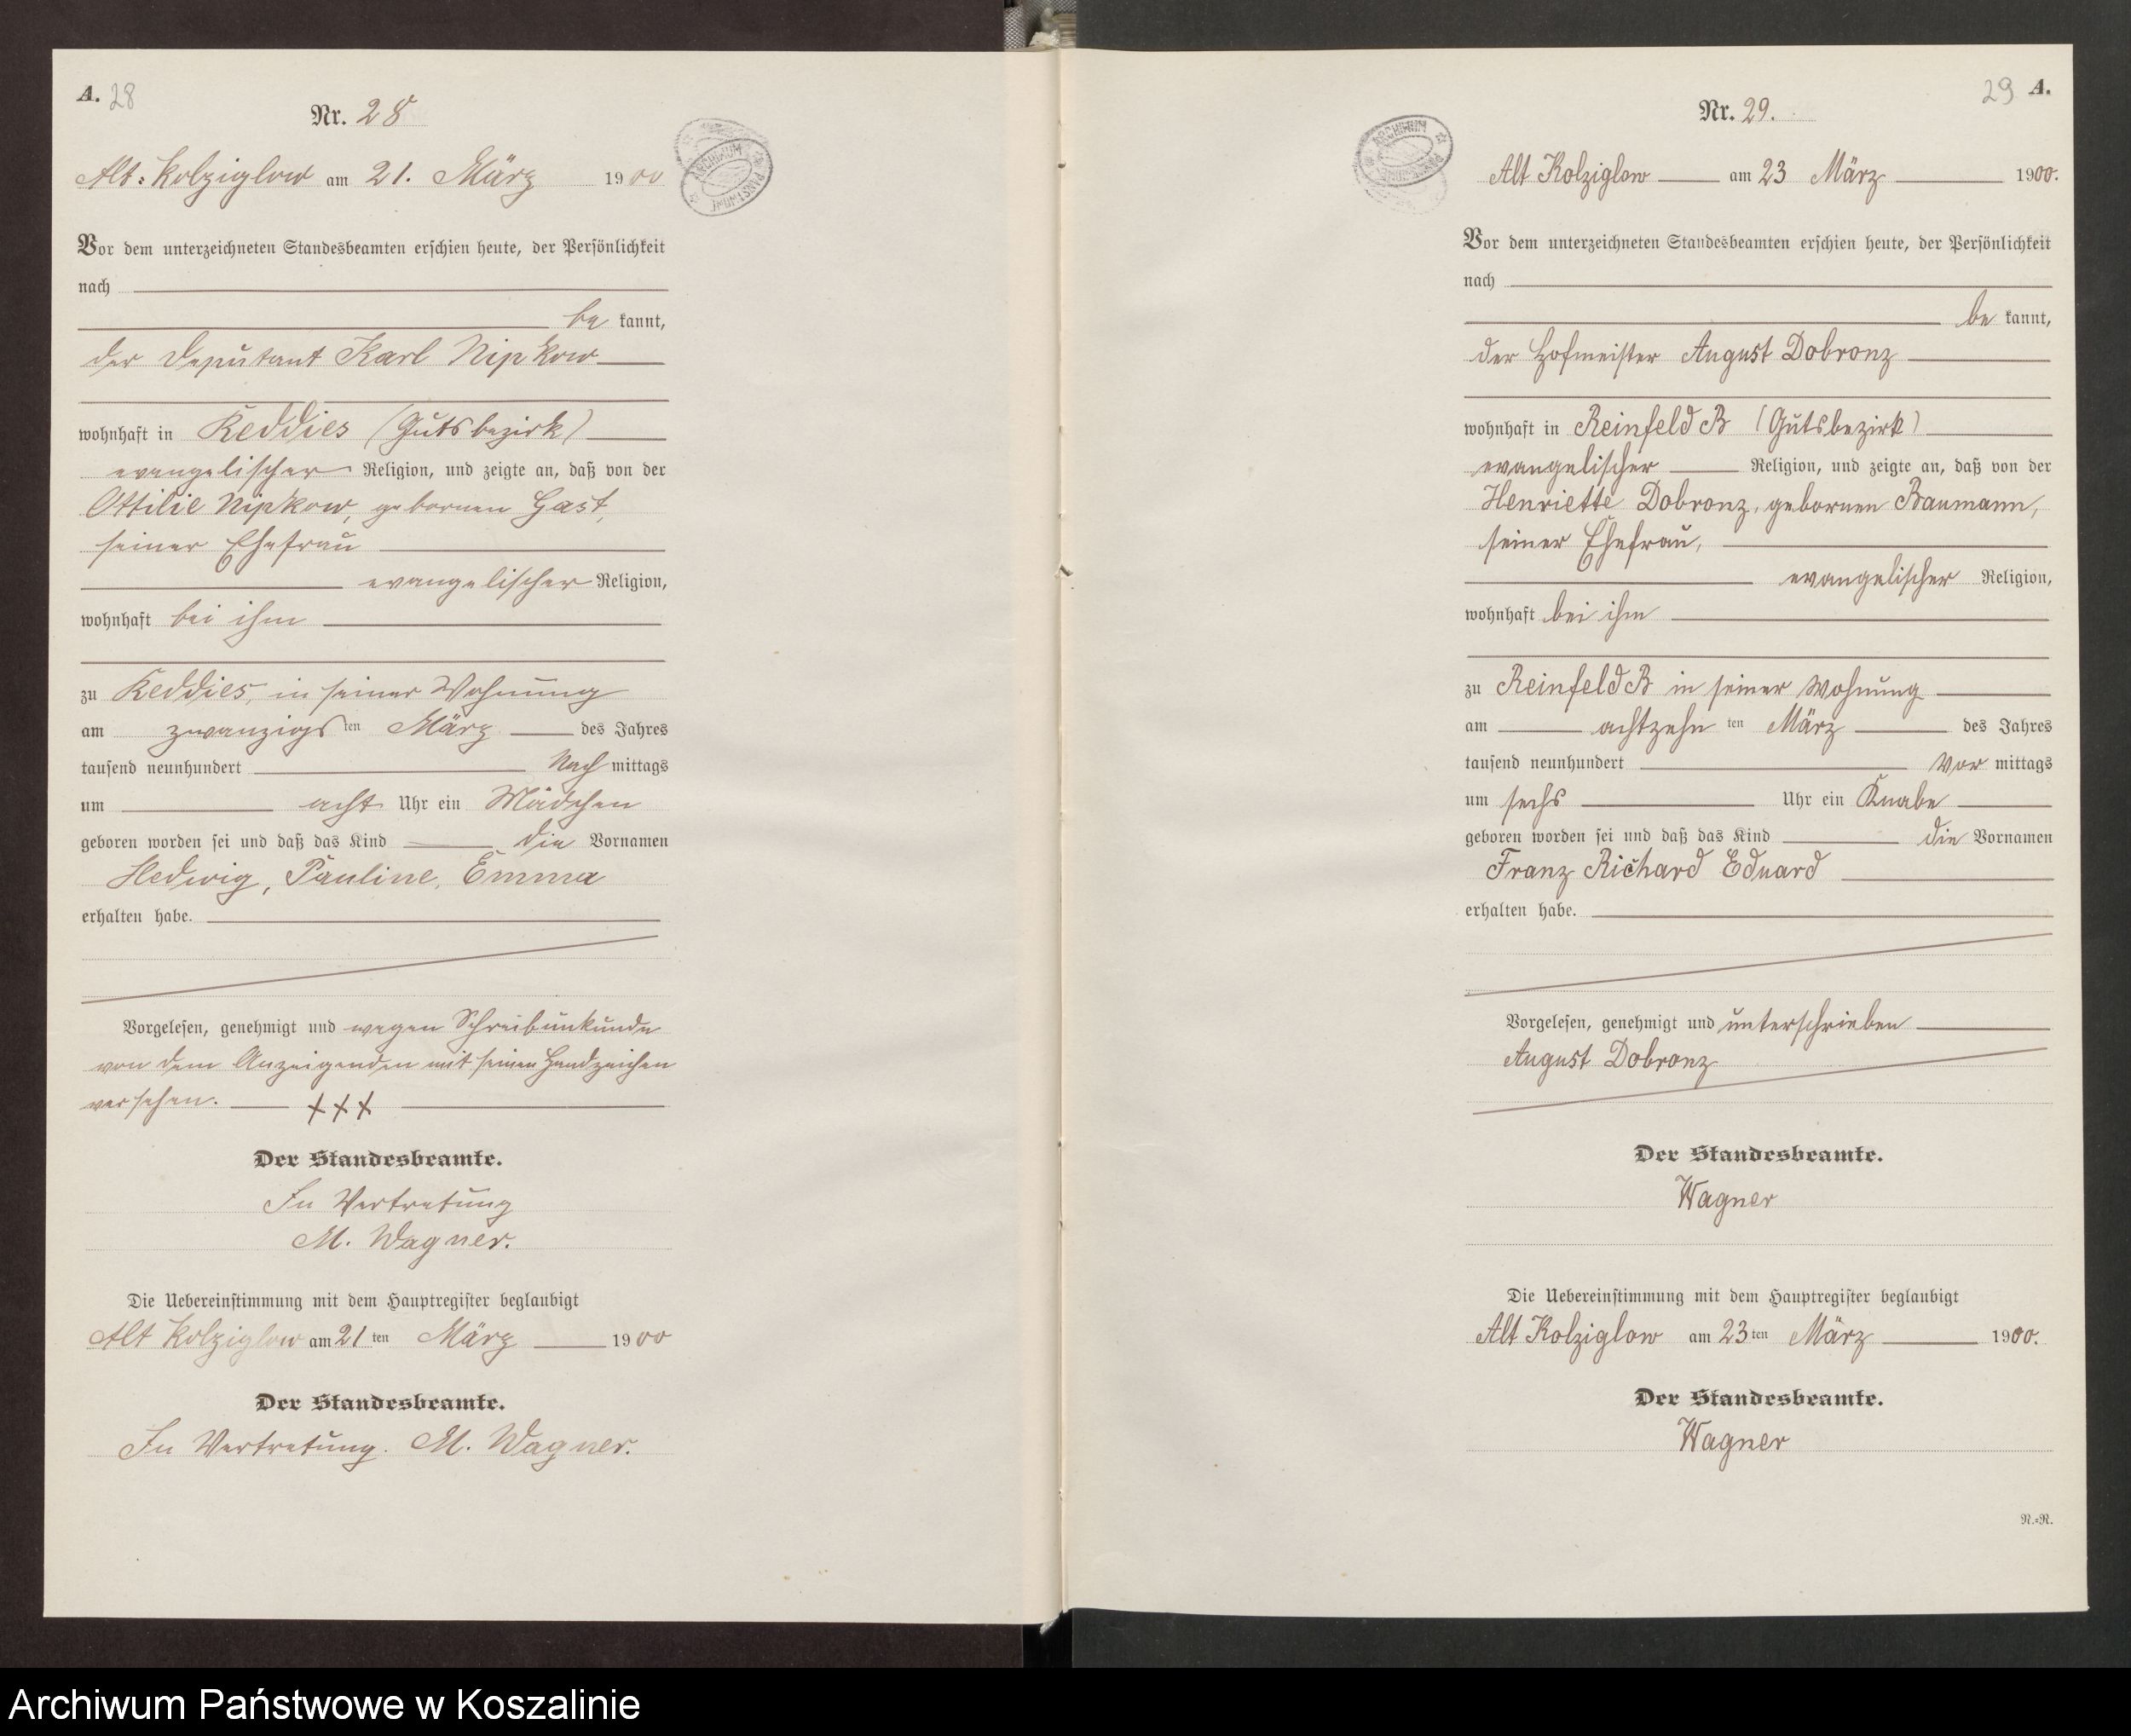 A. 28
Nr. 28
Alt-Kolziglow am 21. März 1900
Vor dem unterzeichneten Standesbeamten erschien heute, der Persönlichkeit
nach
be kannt,
der Deputant Karl Nipkow
wohnhaft in Reddies (Gutsbezirk)
evangelischer Religion, und zeigte an, daß von der
Ottilie Nipkow, gebornen Gast,
seiner Ehefrau
evangelischer Religion,
wohnhaft bei ihm
zu Reddies, in seiner Wohnung
am zwanzigsten März des Jahres
tausend neunhundert Nach mittags
um acht Uhr ein Mädchen
geboren worden sei und daß das Kind die Vornamen
Hedwig, Pauline, Emma
erhalten habe.
Vorgelesen, genehmigt und wegen Schreibunkunde
von dem Anzeigenden mit seinen Handzeichen
versehen. +++
Der Standesbeamte.
In Vertretung
M. Wagner.
Die Uebereinstimmung mit dem Hauptregister beglaubigt
Alt Kolziglow am 21 ten März 1900
Der Standesbeamte.
In Vertretung. M. Wagner.
ARCHIWUM PAŃSTWOWE
29 A.
Nr. 29.
ARCHIWUM PAŃSTWOWE
Alt Kolziglow am 23 März 1900.
Vor dem unterzeichneten Standesbeamten erschien heute, der Persönlichkeit
nach
be kannt,
der Hofmeister August Dobronz
wohnhaft in Reinfeld B (Gutsbezirk)
evangelischer Religion, und zeigte an, daß von der
Henriette Dobronz, gebornen Baumann,
seiner Ehefrau,
evangelischer Religion,
wohnhaft bei ihm
zu Reinfeld B in seiner Wohnung
am achtzehn ten März des Jahres
tausend neunhundert Vor mittags
um sechs Uhr ein Knabe
geboren worden sei und daß das Kind die Vornamen
Franz Richard Eduard
erhalten habe.
Vorgelesen, genehmigt und unterschrieben
August Dobronz
Der Standesbeamte.
Wagner
Die Uebereinstimmung mit dem Hauptregister beglaubigt
Alt Kolziglow am 23 ten März 1900.
Der Standesbeamte.
Wagner
N.=R.
Archiwum Państwowe w Koszalinie